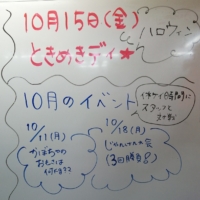 10月15日(金)
ときめきディ★
ハロウィン
10月のイベント
休けい時間に
スタッフと
10/11(月)
かぼちゃの
おもさは
何kg??
10/18(月)
じゃんけん大会
(3回勝負)